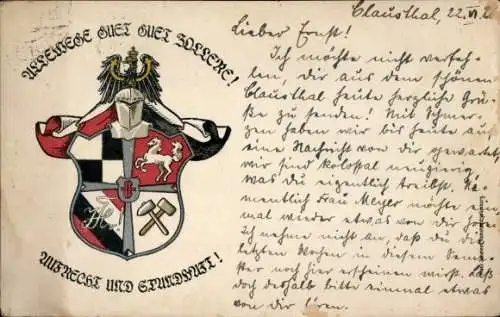 ALLEWEGE GUET GUET ZOLLERE!
AUFRECHT UND STANDHAFT!
Clausthal, 22. VI.
Lieber Ernst!
Ich möchte nicht verfeh-
len, dir aus dem schönen
Clausthal heute herzliche Grü-
ße zu senden! Mit Schmer-
zen haben wir bis heute auf
eine Nachricht von dir gewartet,
wir sind kolossal neugierig
was du eigentlich treibst. Na-
mentlich Frau Meyer möchte ein-
mal wieder etwas von dir hören.
Ich nehme nicht an, daß du die
letzten Wochen in diesem Seme-
ster noch hier erscheinen wirst. Laß
doch deshalb bitte einmal etwas
von dir hören.